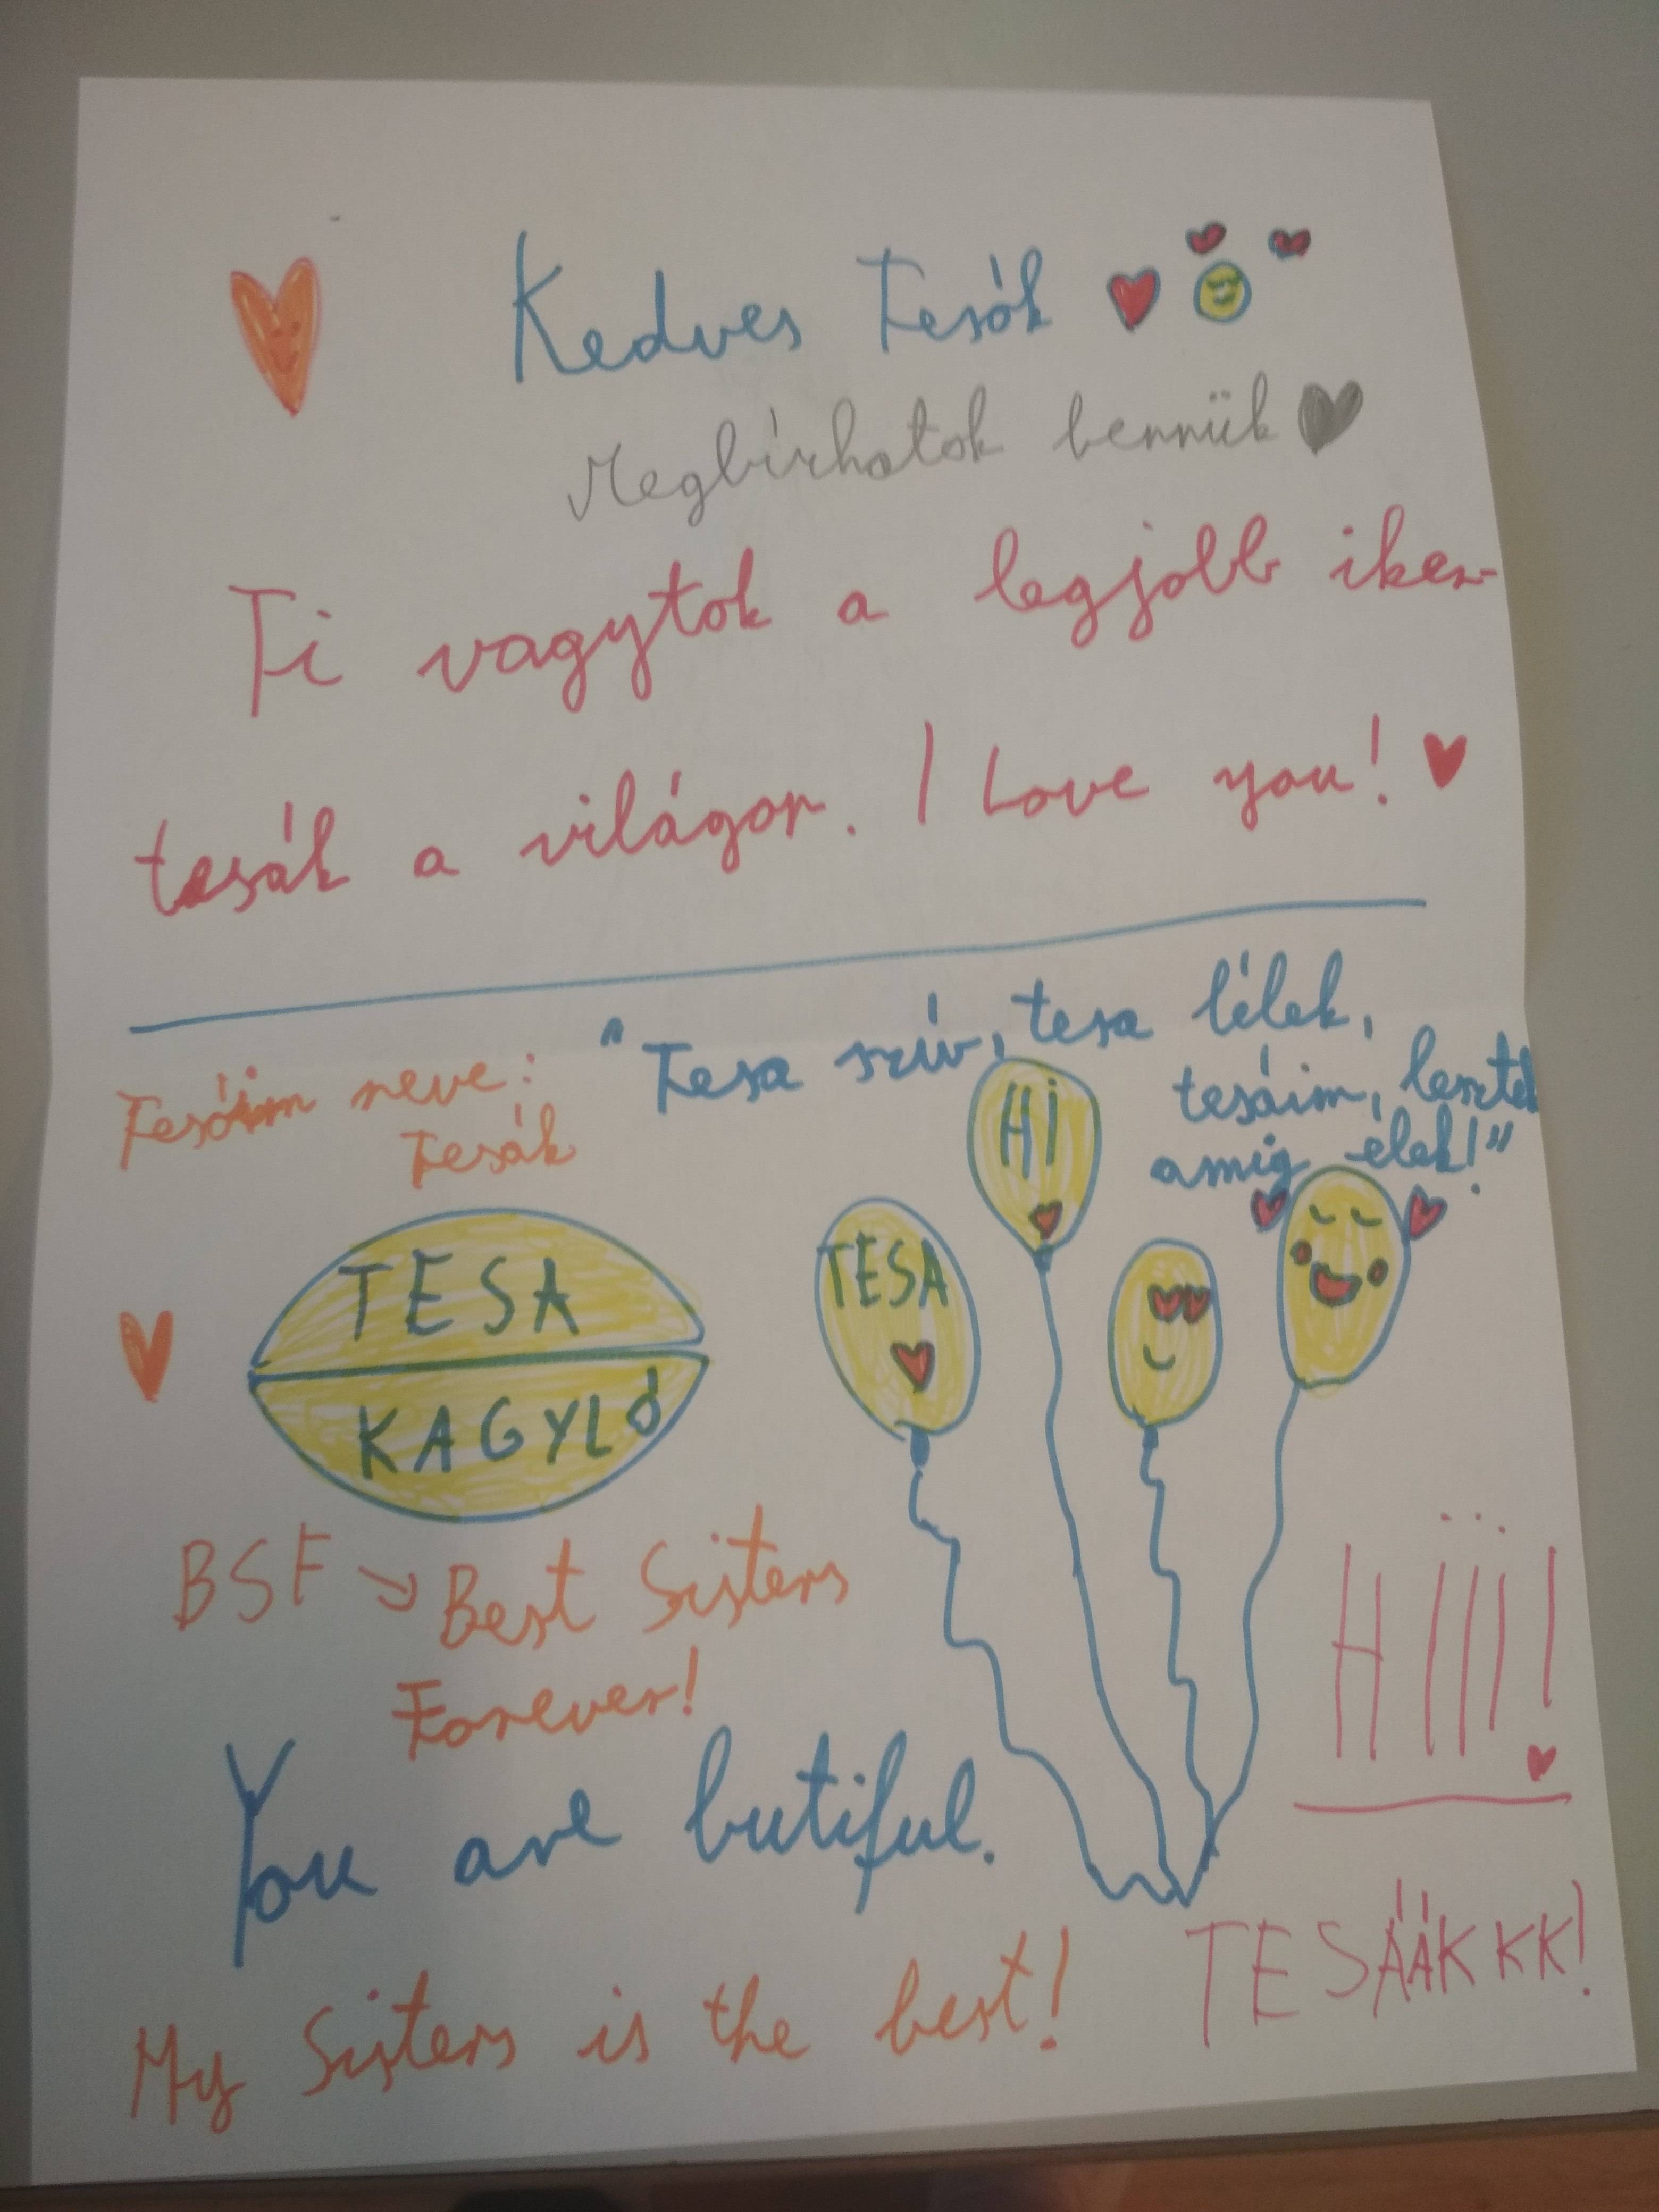 Kedves Tesók
Megbírhatok bennük
Ti vagytok a legjobb iker-
tesák a világon. I Love you!
"Tesa szív, tesa lélek,
tesáim, lesztek
amig élek!"
Tesóim neve:
Tesák
HI
TESA
TESA
KAGYLÓ
BSF → Best Sisters
Forever!
HIII!
You are butiful.
TESÁÁKKK!
My Sisters is the best!